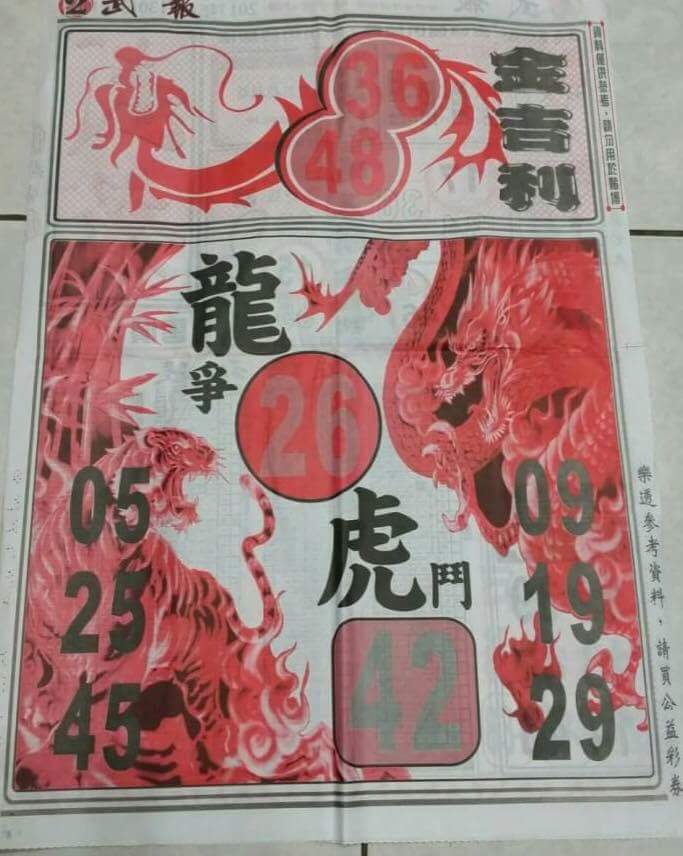 2 武報
金吉利
36
48
資料僅供參考，請勿用於賭博
龍爭
26
虎鬥
42
05
25
45
09
19
29
樂透參考資料，請買公益彩券